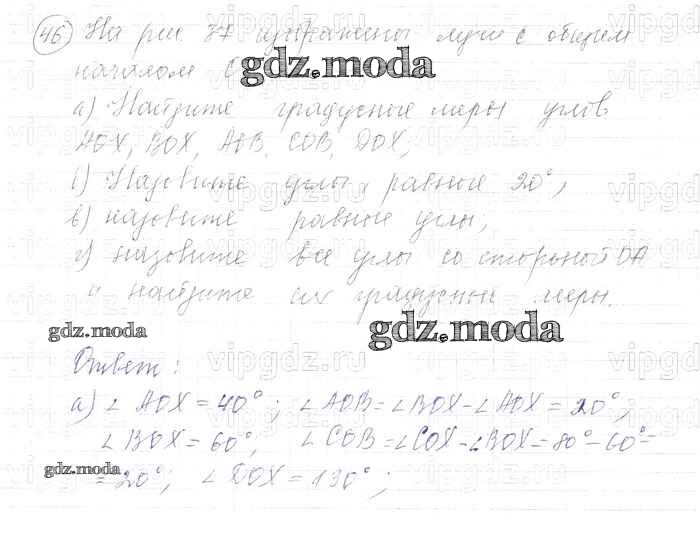 46 На рис 37 изображены лучи с общим
началом
gdz.moda
а) Найдите градусные меры углов
AOX, BOX, AOB, COB, DOX;
б) Назовите углы, равные 20°;
в) назовите равные углы;
г) назовите все углы со стороной OA
и найдите их градусные меры.
gdz.moda
gdz.moda
Ответ:
а) ∠ AOX = 40°; ∠ AOB = ∠ BOX - ∠ AOX = 20°;
∠ BOX = 60°; ∠ COB = ∠ COX - ∠ BOX = 80° - 60° =
gdz.moda
= 20°; ∠ DOX = 130°;
vipgdz.ru